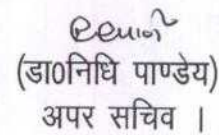 (डा0निधि पाण्डेय)
अपर सचिव ।